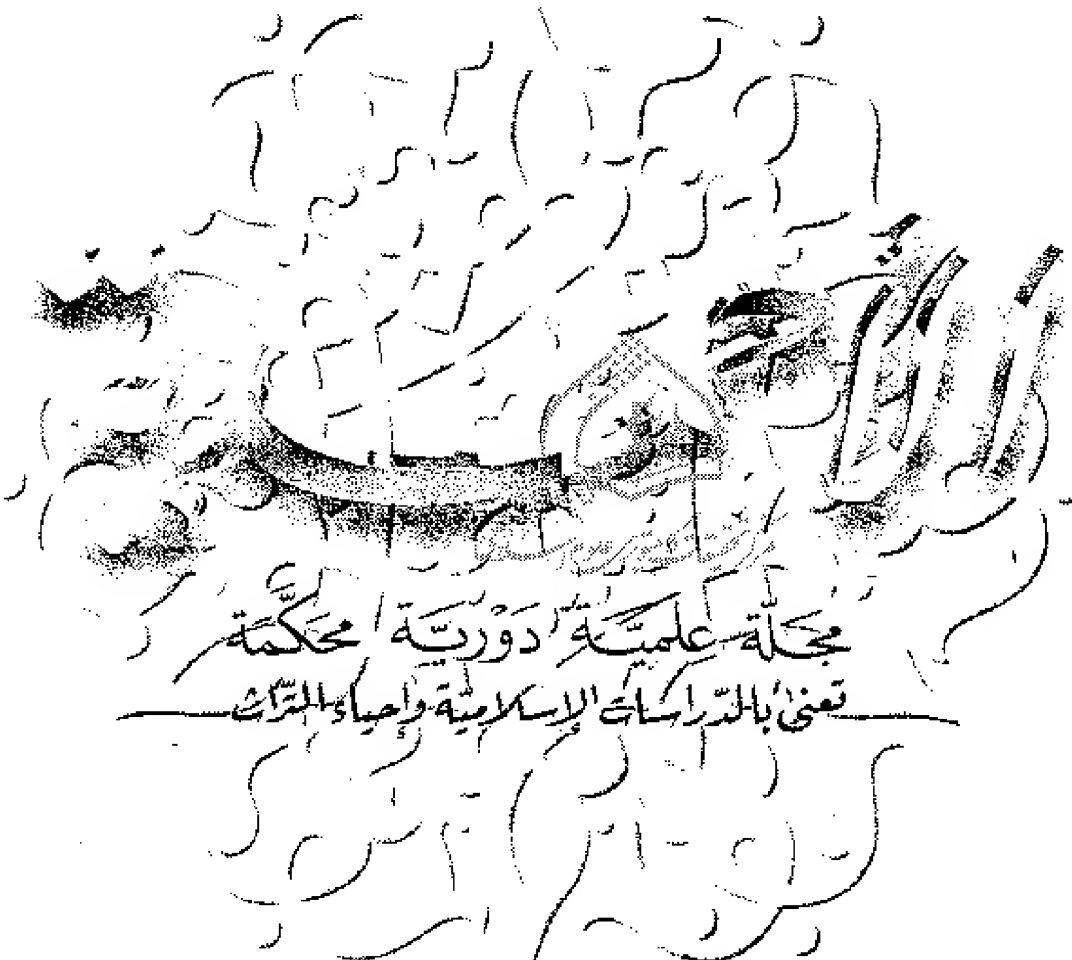 الأحمدية
مجلّة علميّة دوريّة محكّمة
تعنى بالدّراسات الإسلاميّة وإحياء التّراث